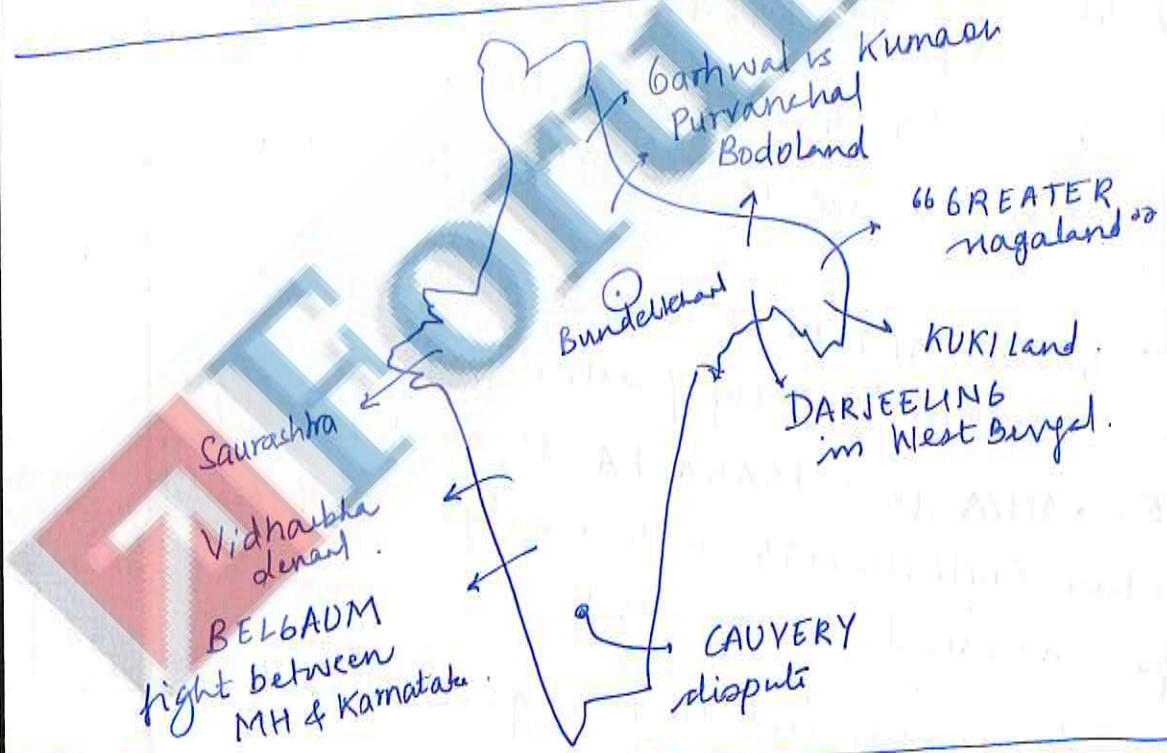 Garhwal vs Kumaon
Purvanchal
Bodoland
"GREATER
nagaland"
Bundelkhand
KUKI Land.
DARJEELING
in West Bengal.
Saurashtra
Vidharbha
demand.
BELGAUM
fight between
MH & Karnataka.
CAUVERY
dispute
7
Foru